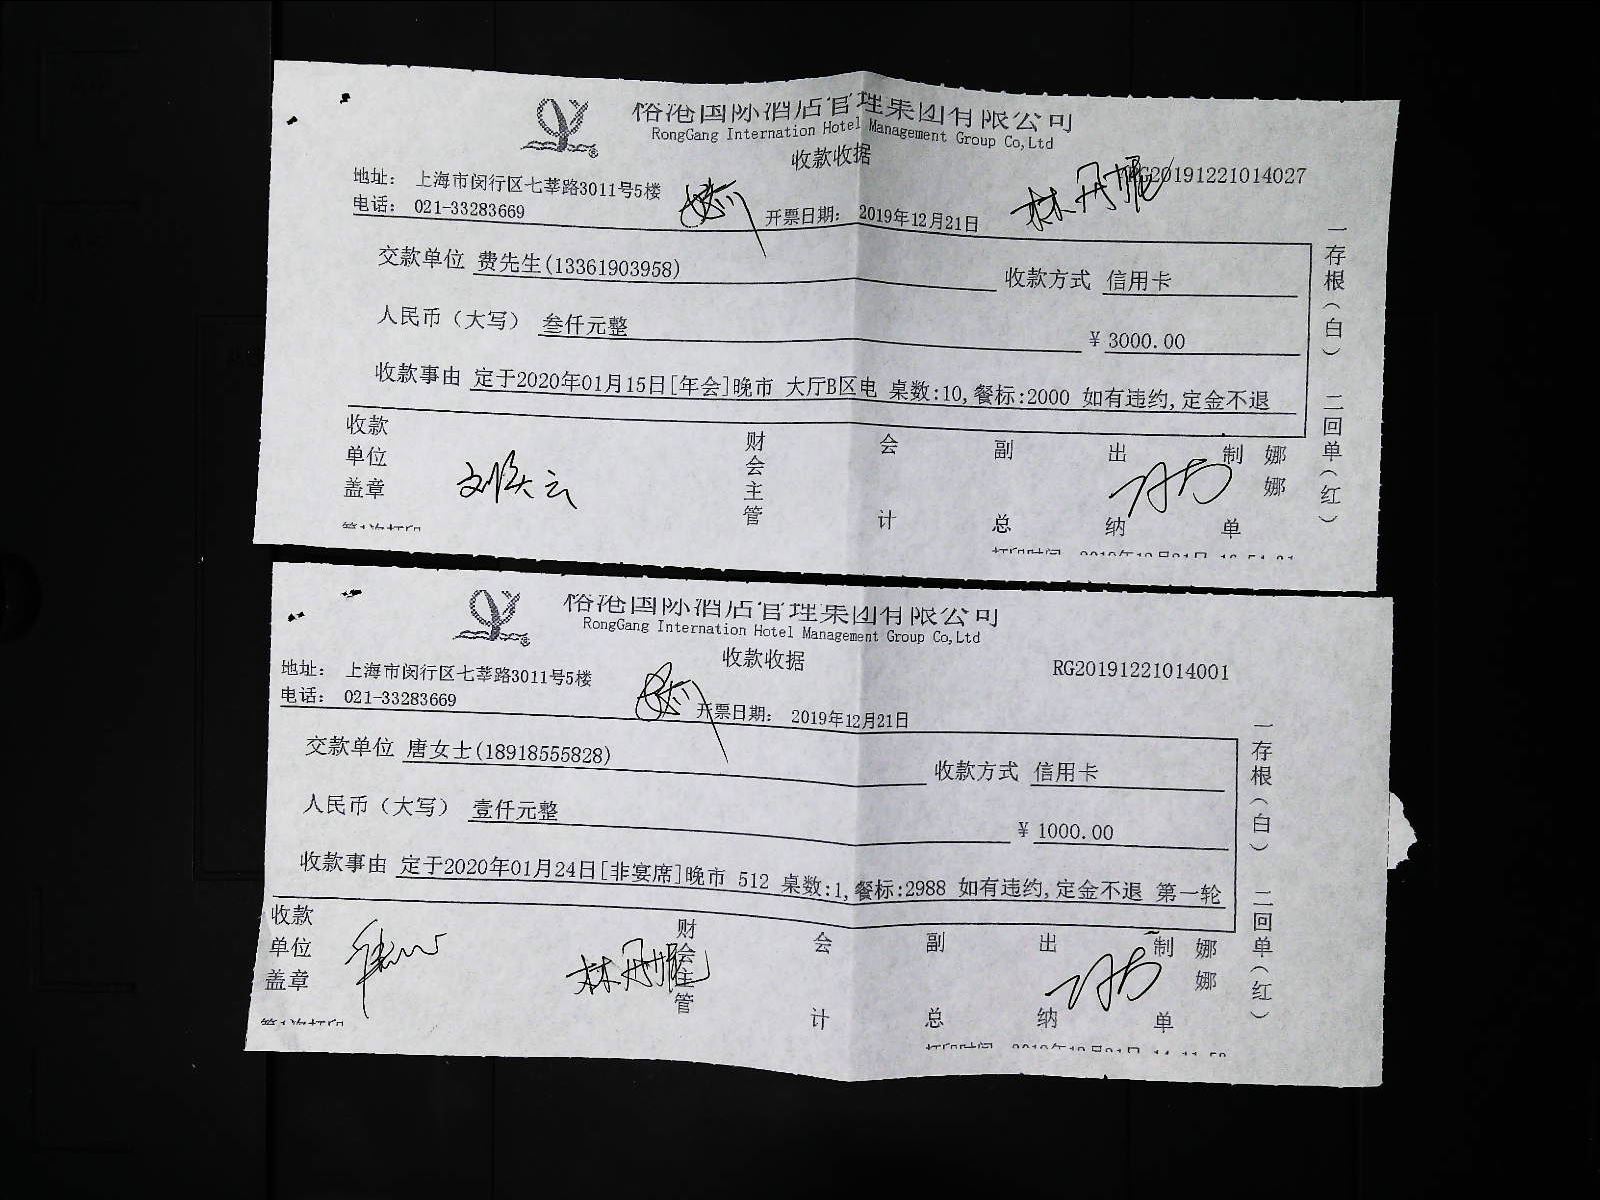 榕港国际酒店管理集团有限公司
RongGang Internation Hotel Management Group Co,Ltd
收款收据
地址： 上海市闵行区七莘路3011号5楼
RG20191221014027
电话： 021-33283669
开票日期： 2019年12月21日
林丹妮
交款单位 费先生(13361903958)
收款方式 信用卡
人民币（大写） 叁仟元整
¥ 3000.00
收款事由 定于2020年01月15日[年会]晚市 大厅B区电 桌数:10,餐标:2000 如有违约,定金不退
收款单位盖章
财会主管
会计
副总
出纳
制单
娜娜
一存根（白） 二回单（红）
第1次打印
打印时间 2019年12月21日
榕港国际酒店管理集团有限公司
RongGang Internation Hotel Management Group Co,Ltd
收款收据
地址： 上海市闵行区七莘路3011号5楼
RG20191221014001
电话： 021-33283669
开票日期： 2019年12月21日
交款单位 唐女士(18918555828)
收款方式 信用卡
人民币（大写） 壹仟元整
¥ 1000.00
收款事由 定于2020年01月24日[非宴席]晚市 512 桌数:1,餐标:2988 如有违约,定金不退 第一轮
收款单位盖章
林丹妮
财会主管
会计
副总
出纳
制单
娜娜
一存根（白） 二回单（红）
第1次打印
打印时间 2019年12月21日